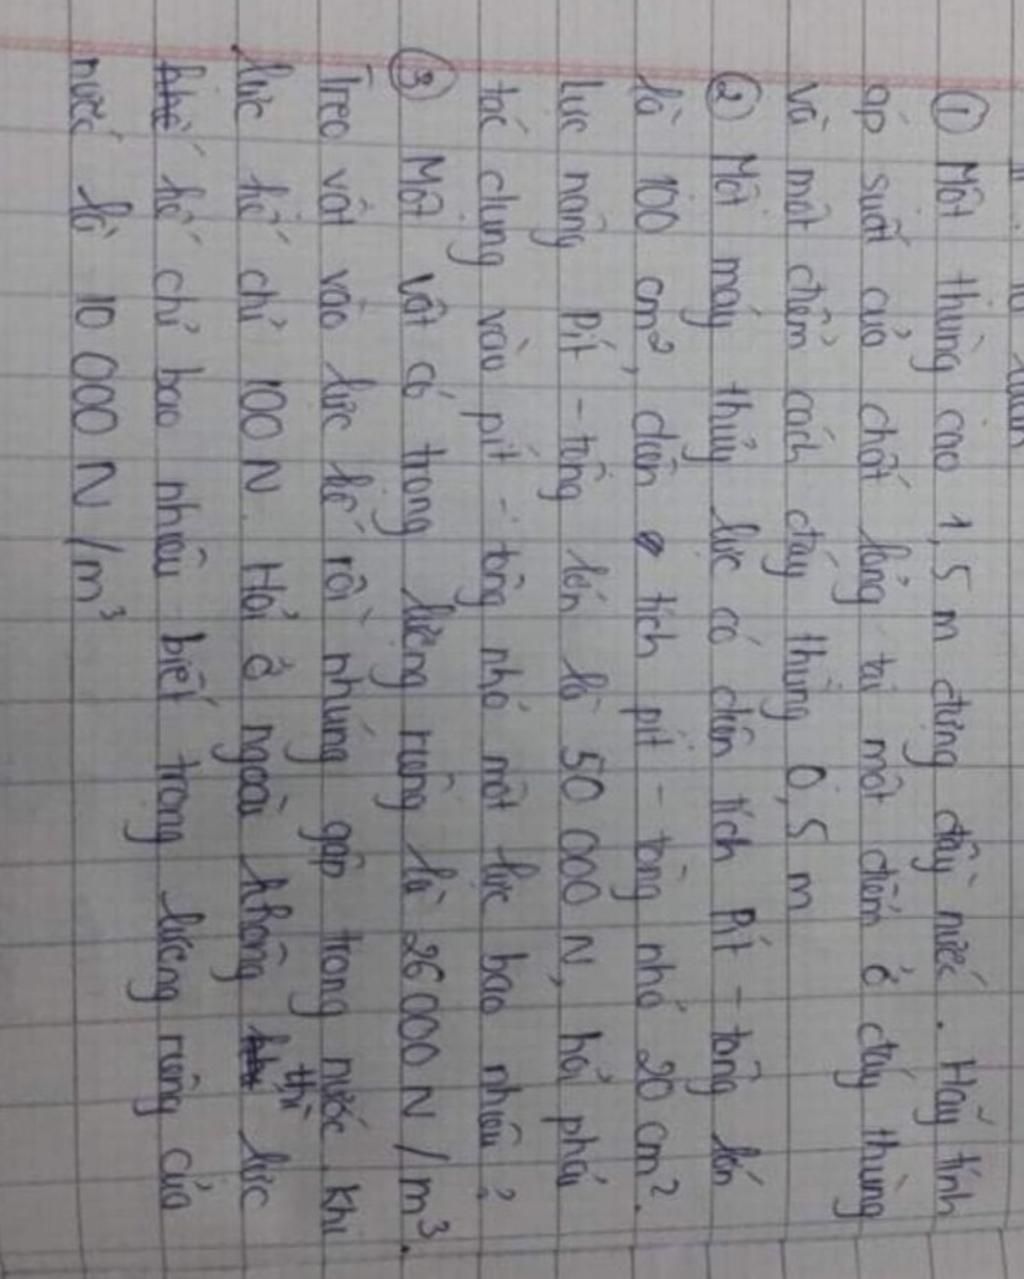 ① Một thùng cao 1,5 m đựng đầy nước. Hãy tính
áp suất của chất lỏng tại một điểm ở đáy thùng
và một điểm cách đáy thùng 0,5 m
② Một máy thủy lực có diện tích Pít - tông lớn
là 100 cm², diện tích pít - tông nhỏ 20 cm².
Lực nâng Pít - tông lớn là 50 000 N, hỏi phải
tác dụng vào pít - tông nhỏ một lực bao nhiêu?
③ Một vật có trọng lượng riêng là 26 000 N/m³.
Treo vật vào lực kế rồi nhúng gập trong nước. Khi
lực kế chỉ 100 N. Hỏi ở ngoài không thì lực
kế chỉ bao nhiêu biết trọng lượng riêng của
nước là 10 000 N/m³